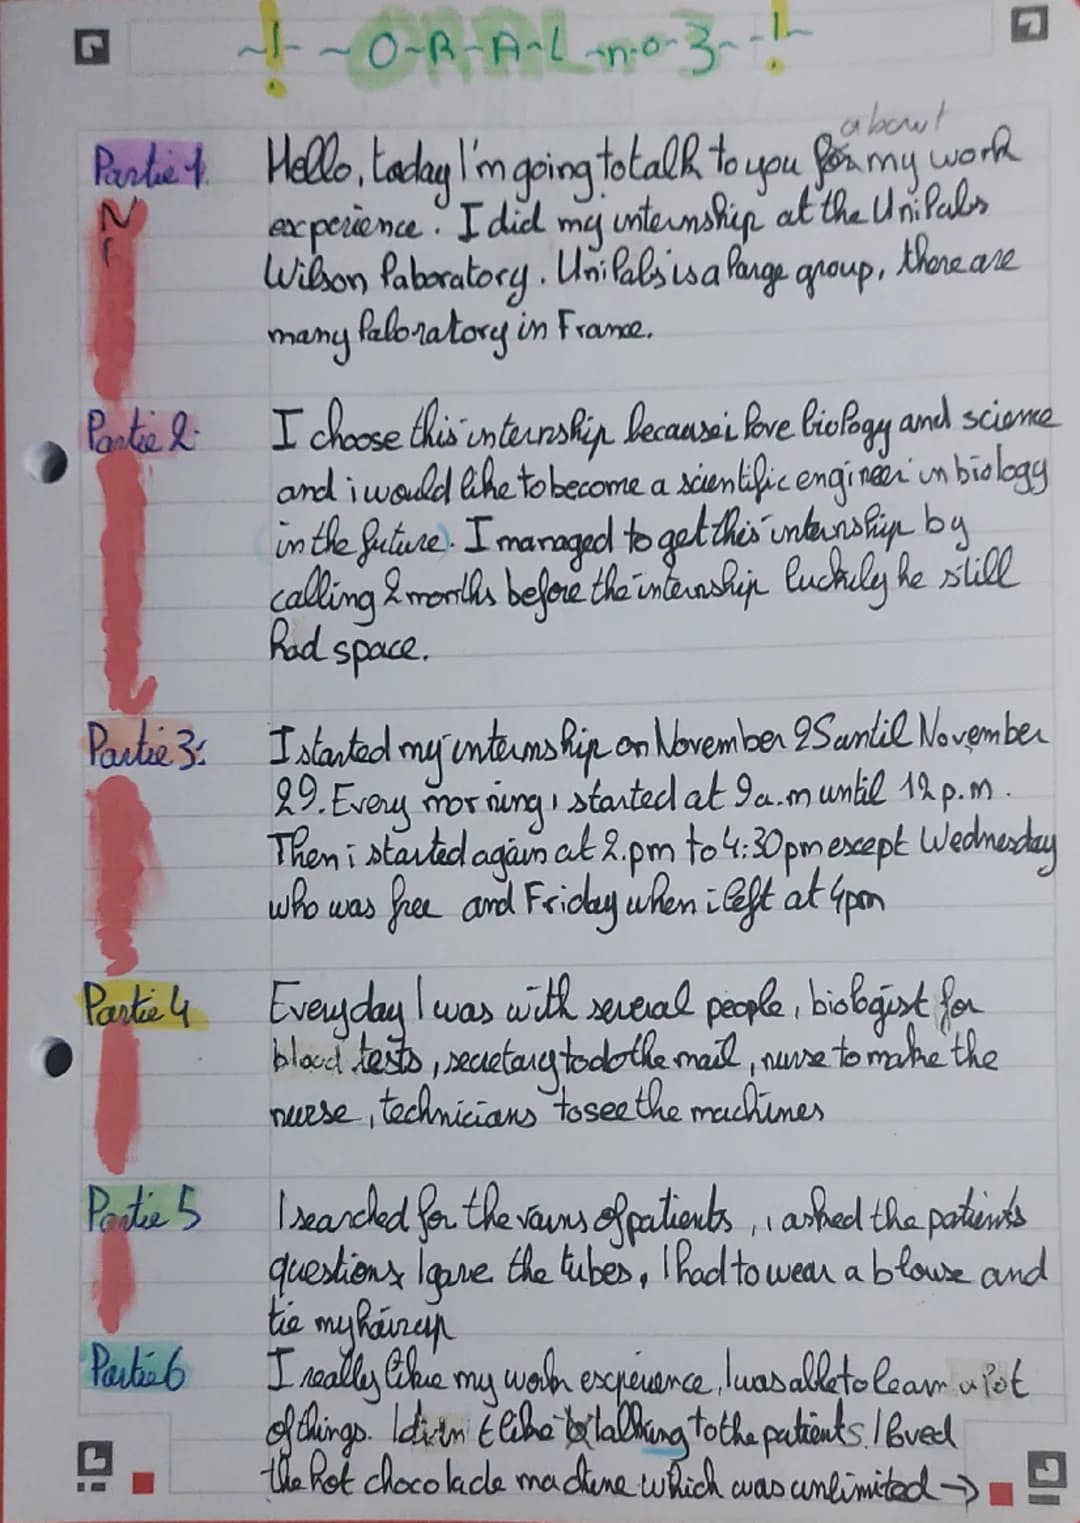 ~!~ ~O~R~A~L~n~o~3~ ~!~
about
Partie 1. Hello, today I'm going to talk to you for my work
experience. I did my internship at the Unilabs
Wilson laboratory. Unilabs is a large group, there are
many laboratory in France.
Partie 2: I choose this internship because i love biology and science
and i would like to become a scientific engineer in biology
in the future). I managed to get this internship by
calling 2 months before the internship luckily he still
had space.
Partie 3: I started my internship on November 25 until November
29. Every morning i started at 9a.m until 12 p.m.
Then i started again at 2.pm to 4:30pm except Wednesday
who was free and Friday when i left at 4pm
Partie 4 Everyday I was with several people, biologist for
blood tests, secretary to do the mail, nurse to make the
nurse, technicians to see the machines
Partie 5 I searched for the vains of patients, i asked the patients
questions I gave the tubes, I had to wear a blouse and
tie my hair up
Partie 6 I really like my work experience, I was able to learn a lot
of things. I didn't like talking to the patients. I loved
the hot chocolade machine which was unlimited →